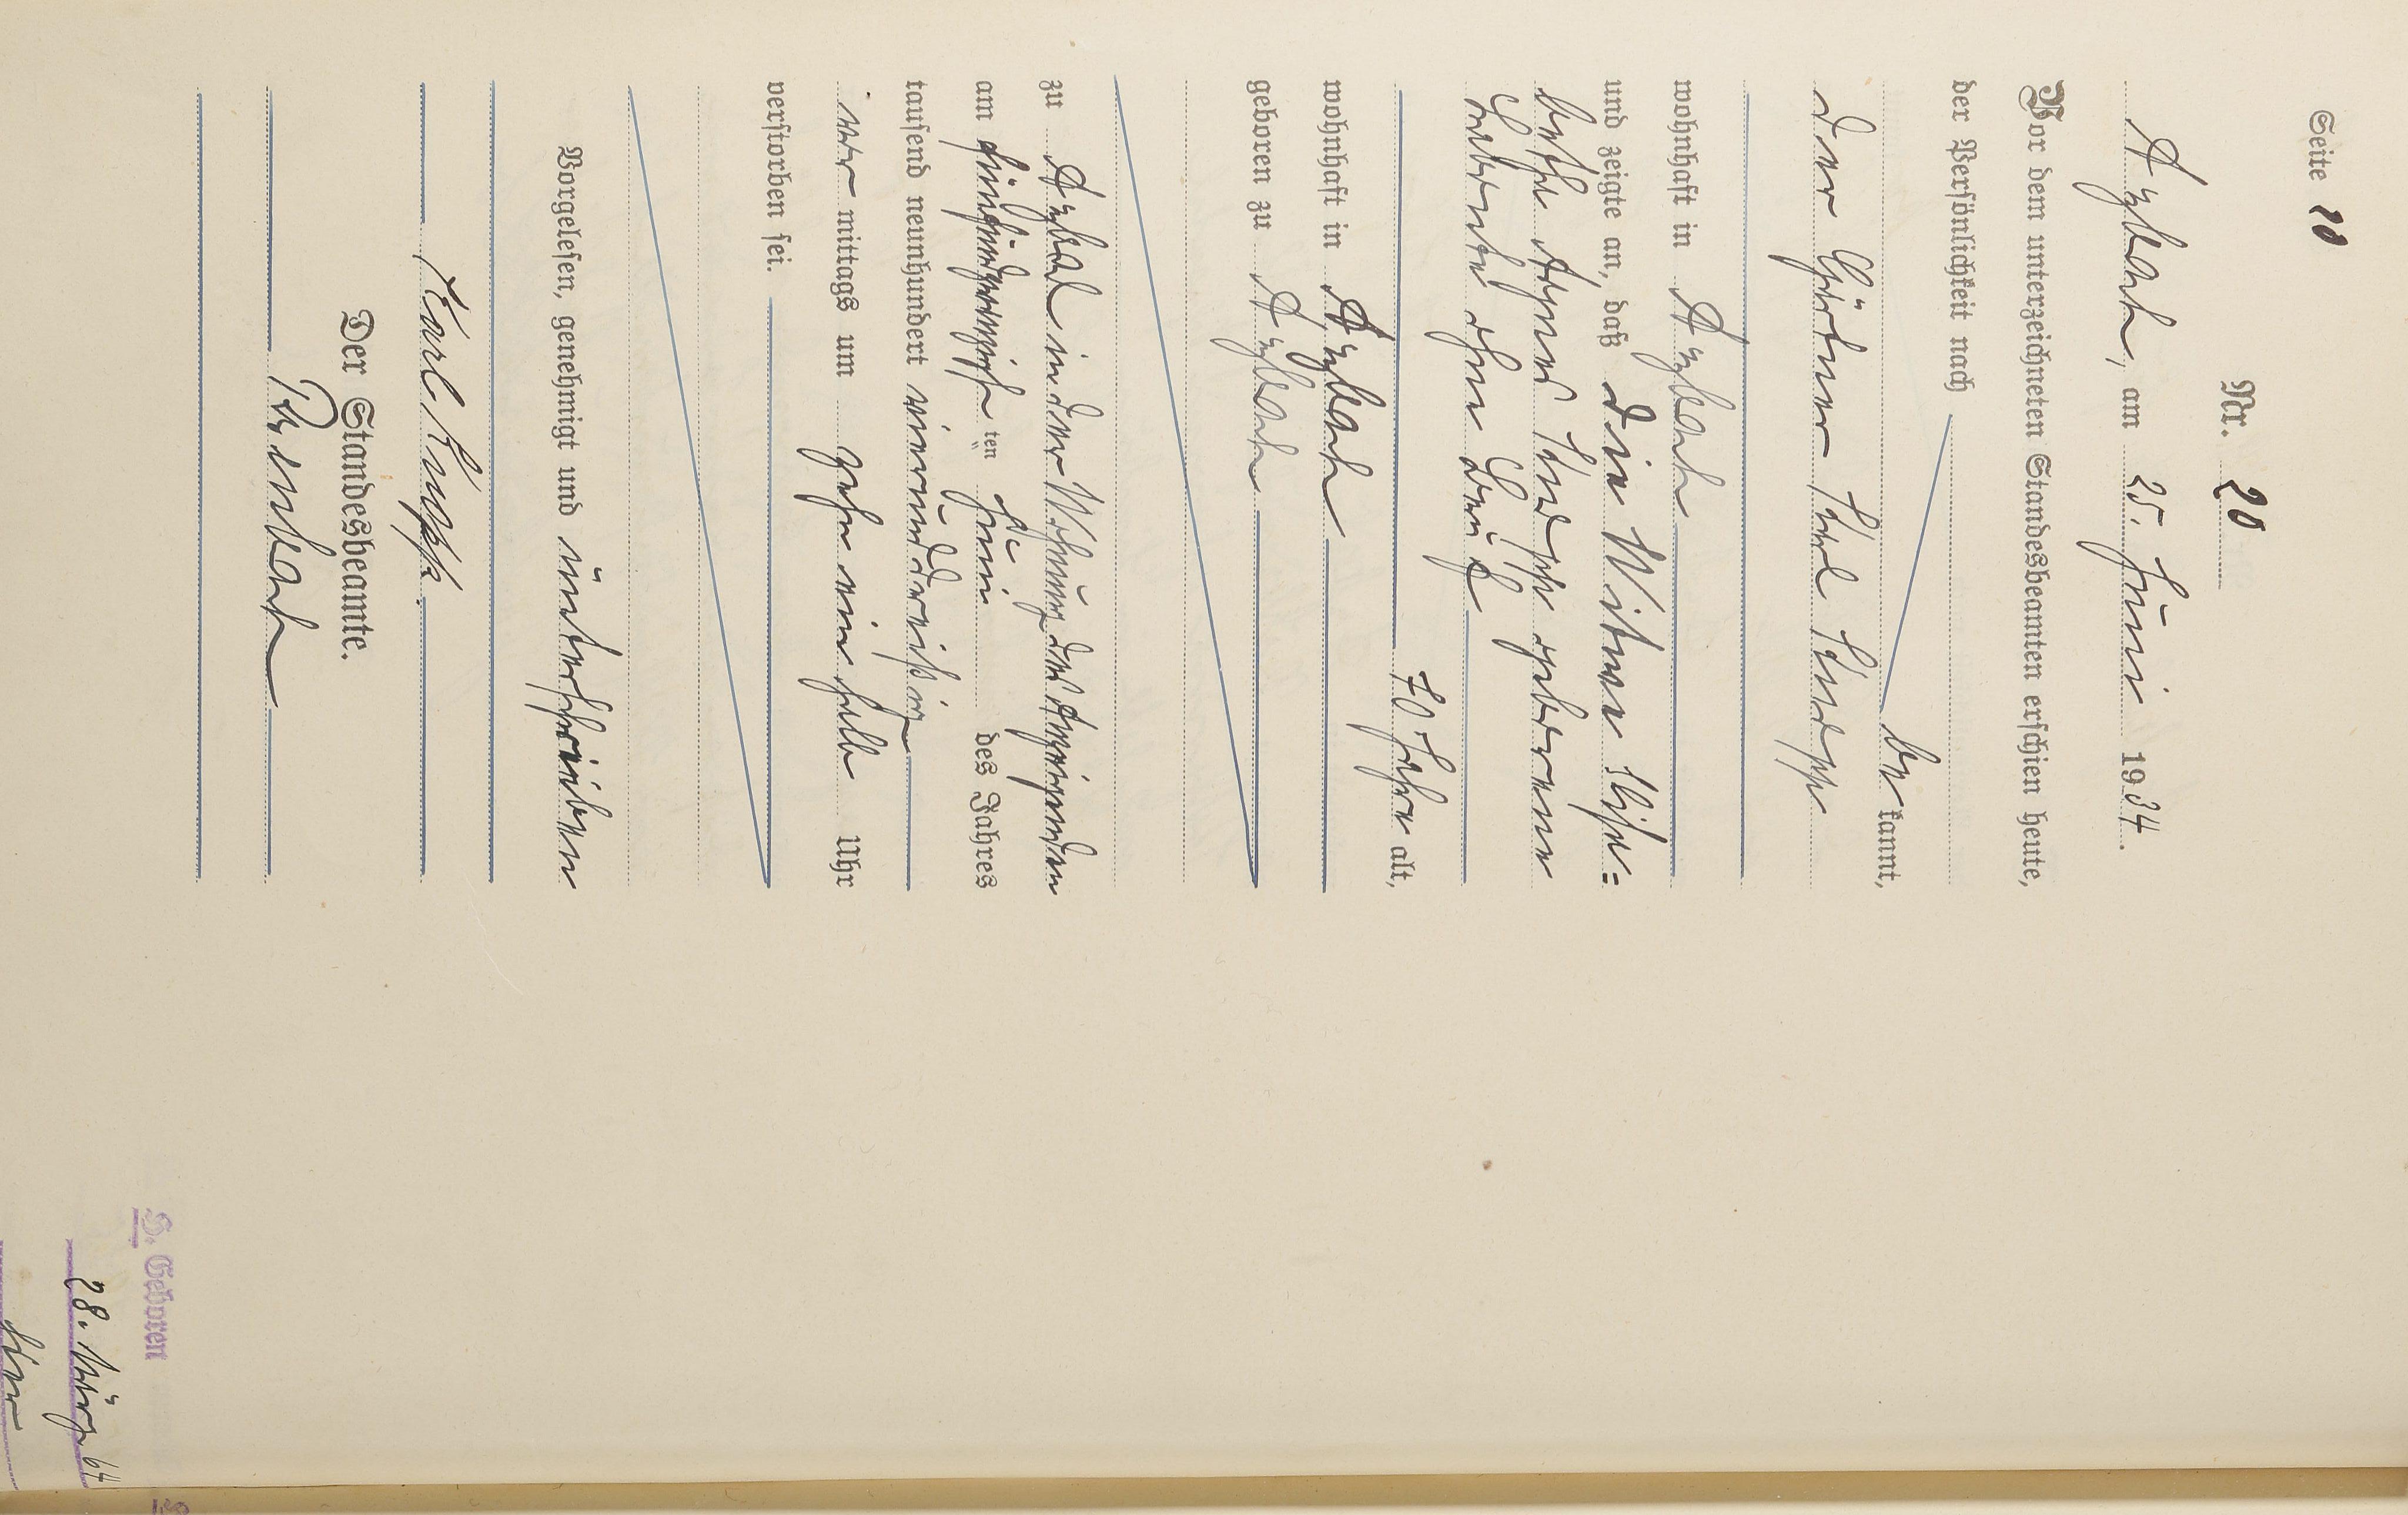 Seite 10
Nr. 20
Aßlar, am 25. Juni 1934.
Vor dem unterzeichneten Standesbeamten erschien heute,
der Persönlichkeit nach
be kannt,
der Gärtner Karl Knapp
wohnhaft in Aßlar
und zeigte an, daß die Witwe Elisa=
bethe Agnes Knapp geborene
ohne Beruf
70 Jahre alt,
wohnhaft in Aßlar
geboren zu Aßlar
zu Aßlar in der Wohnung des Anzeigenden
am fünfundzwanzigsten Juni des Jahres
tausend neunhundert vierunddreißig
vor mittags um zehn ein halb Uhr
verstorben sei.
Vorgelesen, genehmigt und unterschrieben
Karl Knapp.
Der Standesbeamte.
Geboren
28. März 64
hier